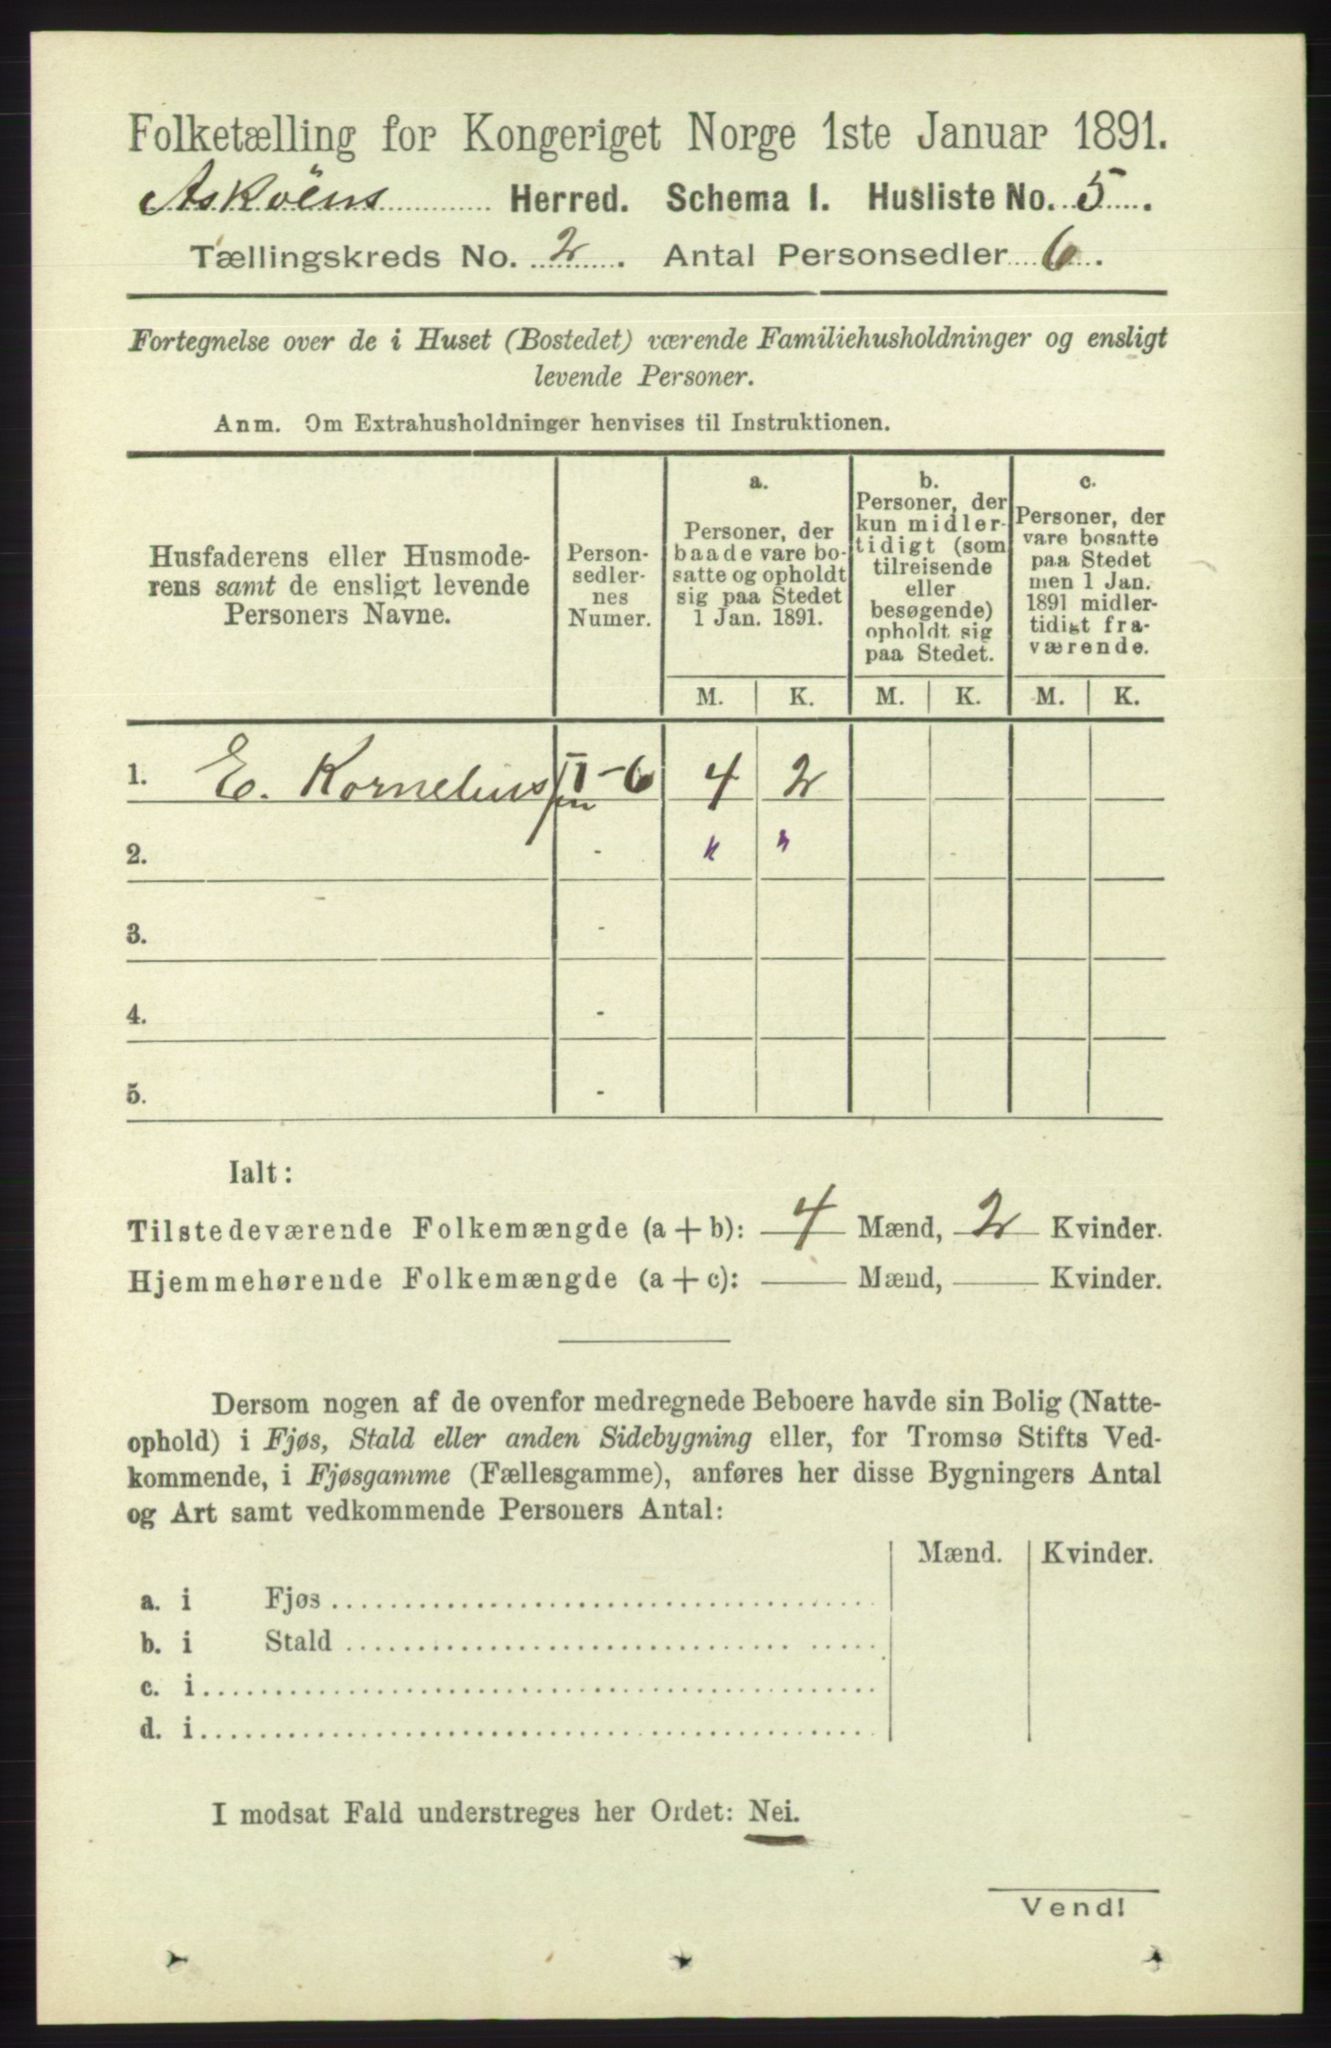 Folketælling for Kongeriget Norge 1ste Januar 1891.
Askøens Herred. Schema I. Husliste No. 5.
Tællingskreds No. 2. Antal Personsedler 6.
Fortegnelse over de i Huset (Bostedet) værende Familiehusholdninger og ensligt
levende Personer.
Anm. Om Extrahusholdninger henvises til Instruktionen.
Husfaderens eller Husmode-
rens samt de ensligt levende
Personers Navne.
Person-
sedler-
nes
Numer.
a.
Personer, der
baade vare bo-
satte og opholdt
sig paa Stedet
1 Jan. 1891.
b.
Personer, der
kun midler-
tidigt (som
tilreisende
eller
besøgende)
opholdt sig
paa Stedet.
c.
Personer, der
vare bosatte
paa Stedet
men 1 Jan.
1891 midler-
tidigt fra-
værende.
M. K. M. K. M. K.
1. E. Korneliussen 1-6 4 2
2. - " "
3. -
4. -
5. -
Ialt:
Tilstedeværende Folkemængde (a + b): 4 Mænd, 2 Kvinder.
Hjemmehørende Folkemængde (a + c): Mænd, Kvinder.
Dersom nogen af de ovenfor medregnede Beboere havde sin Bolig (Natte-
ophold) i Fjøs, Stald eller anden Sidebygning eller, for Tromsø Stifts Ved-
kommende, i Fjøsgamme (Fællesgamme), anføres her disse Bygningers Antal
og Art samt vedkommende Personers Antal:
Mænd. Kvinder.
a. i Fjøs
b. i Stald
c. i
d. i
I modsat Fald understreges her Ordet: Nei.
Vend!